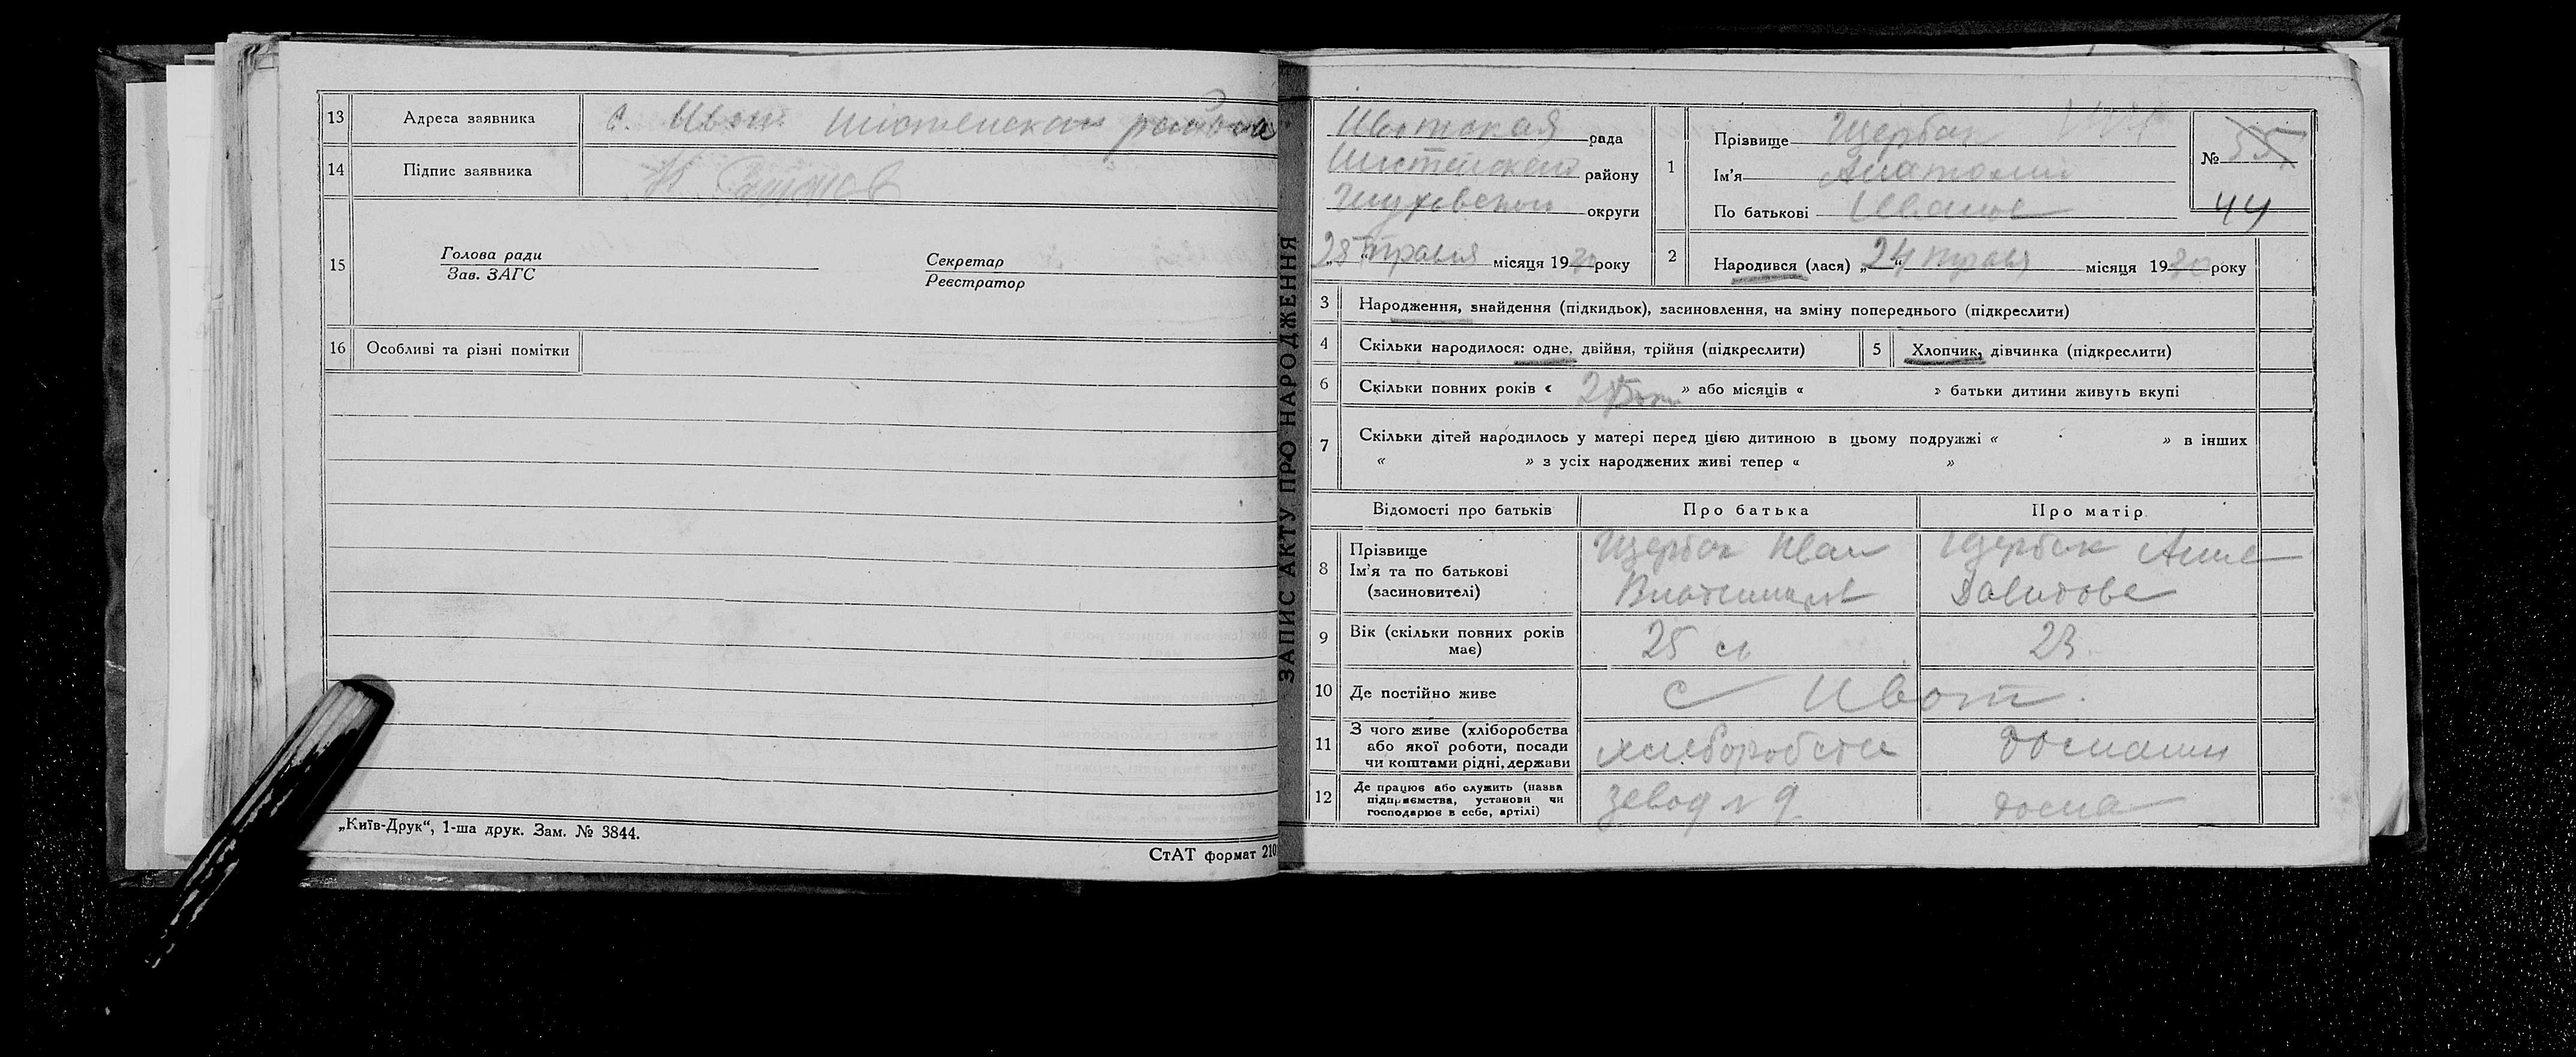 13 Адреса заявника с. Ивот Шостенского района
14 Підпис заявника
15 Голова ради Секретар
Зав. ЗАГС Реєстратор
16 Особливі та різні помітки
„Київ-Друк“, 1-ша друк. Зам. № 3844.
СтАТ формат 210
ЗАПИС АКТУ ПРО НАРОДЖЕННЯ
Ивотская рада
району
округи
28 травня місяця 1930 року
1 Прізвище Щербак
Ім'я Анатолий
По батькові Иванов
№ 55
44
2 Народився (лася) „24“ травня місяця 1930 року
3 Народження, знайдення (підкидьок), засиновлення, на зміну попереднього (підкреслити)
4 Скільки народилося: одне, двійня, трійня (підкреслити)
5 Хлопчик, дівчинка (підкреслити)
6 Скільки повних років « » або місяців « » батьки дитини живуть вкупі
7 Скільки дітей народилось у матері перед цією дитиною в цьому подружжі « » в інших
« » з усіх народжених живі тепер « »
Відомості про батьків Про батька Про матір
8 Прізвище Щербак Иван Щербак Анна
Ім'я та по батькові
(засиновителі) Владимиров Давидова
9 Вік (скільки повних років 25 23
має)
10 Де постійно живе с Ивот
11 З чого живе (хліборобства
або якої роботи, посади хлиборобств
чи коштами рідні, держави
12 Де працює або служить (назва
підприємства, установи чи завод № 9 дома
господарює в себе, артілі)